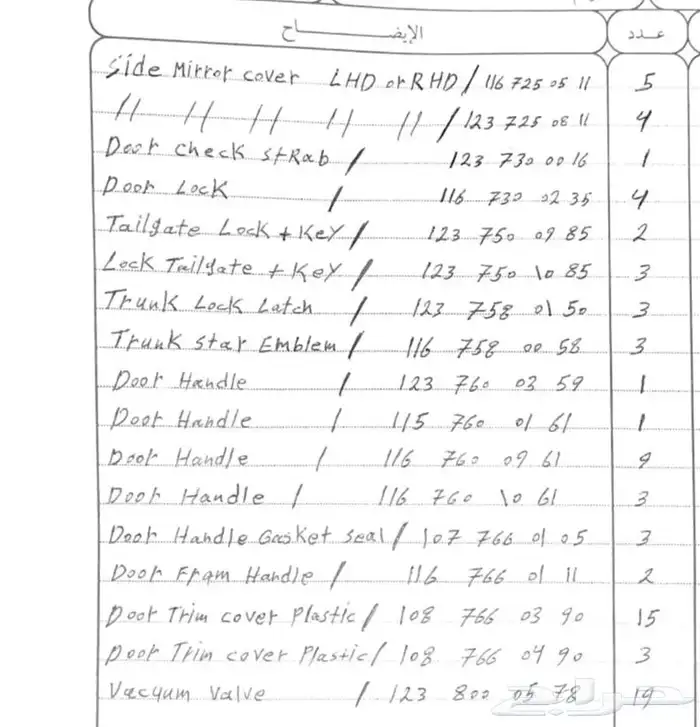 الإيضــــــاح عـدد
Side Mirror cover LHD or RHD / 116 725 05 11 5
// // // // // / 123 725 08 11 4
Door Check StRab / 123 730 00 16 1
Door Lock / 116 730 02 35 4
Tailgate Lock + Key / 123 750 09 85 2
Lock Tailgate + Key / 123 750 10 85 3
Trunk Lock Latch / 123 758 01 50 3
Trunk Star Emblem / 116 758 00 58 3
Door Handle / 123 760 03 59 1
Door Handle / 115 760 01 61 1
Door Handle / 116 760 09 61 9
Door Handle / 116 760 10 61 3
Door Handle Gasket Seal / 107 766 01 05 3
Door Fram Handle / 116 766 01 11 2
Door Trim cover Plastic / 108 766 03 90 15
Door Trim cover Plastic / 108 766 04 90 3
Vacyum Valve / 123 800 05 78 19
حراج